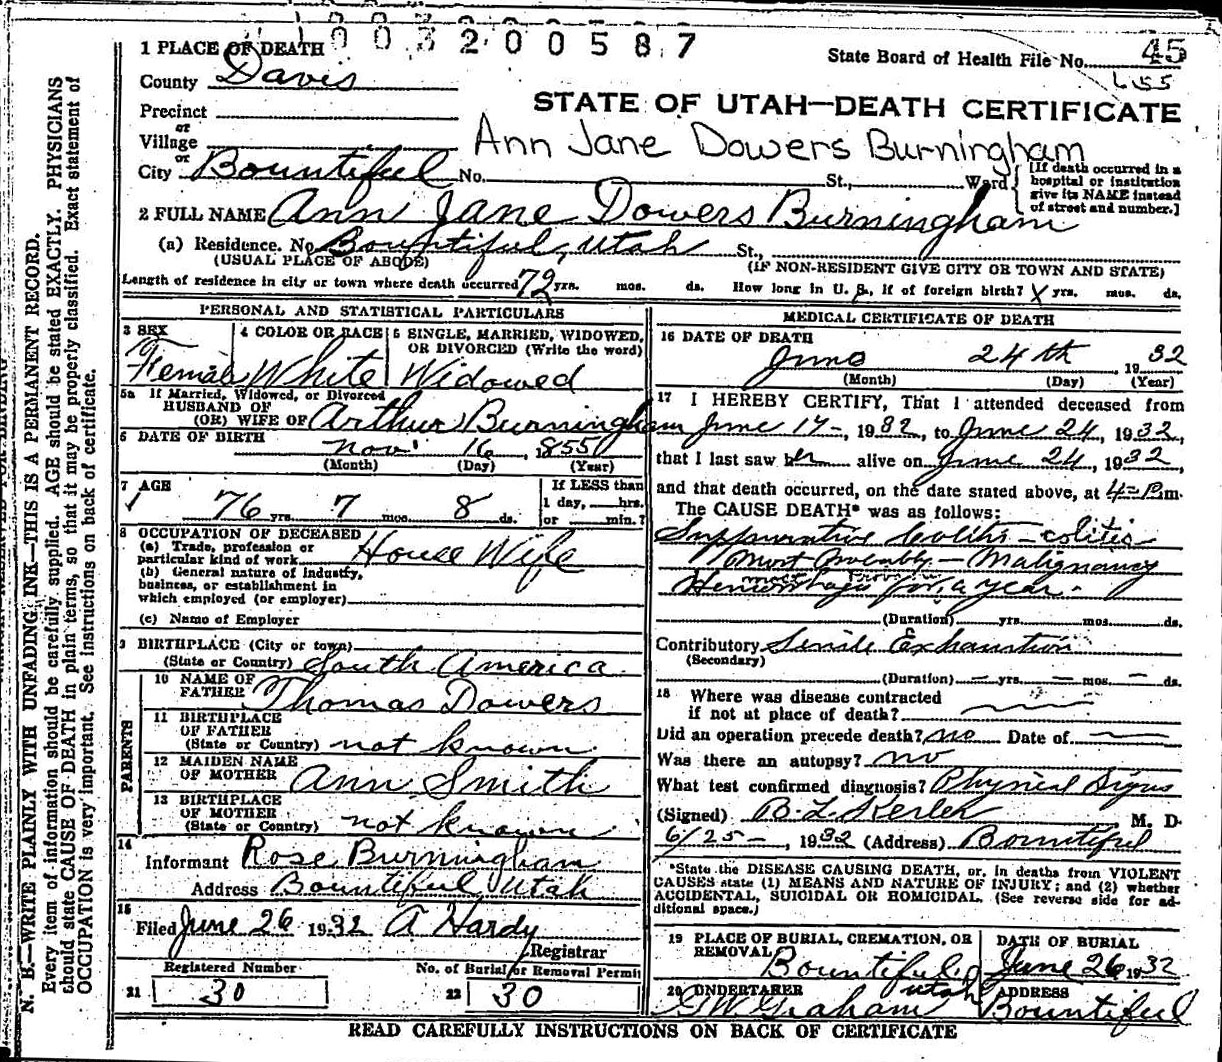 1003200587
1 PLACE OF DEATH
State Board of Health File No. 45
County Davis
655
Precinct
STATE OF UTAH—DEATH CERTIFICATE
or
Village
Ann Jane Dowers Burningham
or
City Bountiful No. St., Ward
[If death occurred in a
hospital or institution
give its NAME instead
of street and number.]
2 FULL NAME Ann Jane Dowers Burningham
(a) Residence. No. Bountiful, Utah St.,
(USUAL PLACE OF ABODE) (IF NON-RESIDENT GIVE CITY OR TOWN AND STATE)
Length of residence in city or town where death occurred 72 yrs. mos. ds. How long in U. S., if of foreign birth? X yrs. mos. ds.
PERSONAL AND STATISTICAL PARTICULARS
3 SEX
Female
4 COLOR OR RACE
White
5 SINGLE, MARRIED, WIDOWED,
OR DIVORCED (Write the word)
Widowed
5a If Married, Widowed, or Divorced
HUSBAND OF
(OR) WIFE OF Arthur Burningham
6 DATE OF BIRTH
Nov. 16, 1855
(Month) (Day) (Year)
7 AGE
76 yrs. 7 mos. 8 ds.
If LESS than
1 day, hrs.
or min.?
8 OCCUPATION OF DECEASED
(a) Trade, profession or
particular kind of work House Wife
(b) General nature of industry,
business, or establishment in
which employed (or employer)
(c) Name of Employer
9 BIRTHPLACE (City or town)
(State or Country) South America
PARENTS
10 NAME OF
FATHER Thomas Dowers
11 BIRTHPLACE
OF FATHER
(State or Country) not known
12 MAIDEN NAME
OF MOTHER Ann Smith
13 BIRTHPLACE
OF MOTHER
(State or Country) not known
14
Informant Rose Burningham
Address Bountiful Utah
15
Filed June 26 1932 A Hardy
Registrar
Registered Number
21 30
No. of Burial or Removal Permit
22 30
MEDICAL CERTIFICATE OF DEATH
16 DATE OF DEATH
June 24th, 1932
(Month) (Day) (Year)
17 I HEREBY CERTIFY, That I attended deceased from
June 17-, 1932, to June 24, 1932,
that I last saw her alive on June 24, 1932,
and that death occurred, on the date stated above, at 4-P.m.
The CAUSE DEATH* was as follows:
Suppurative Colitis - colitis
Most Probably - Malignancy
Hemorrhage for a year.
(Duration) yrs. mos. ds.
Contributory Senile Exhaustion
(Secondary)
(Duration) — yrs. — mos. — ds.
18 Where was disease contracted
if not at place of death?
Did an operation precede death? no Date of
Was there an autopsy? no
What test confirmed diagnosis? Physical Signs
(Signed) B. L. M. D.
6/25-, 1932 (Address) Bountiful
*State the DISEASE CAUSING DEATH, or, in deaths from VIOLENT
CAUSES state (1) MEANS AND NATURE OF INJURY; and (2) whether
ACCIDENTAL, SUICIDAL OR HOMICIDAL. (See reverse side for ad-
ditional space.)
19 PLACE OF BURIAL, CREMATION, OR
REMOVAL
Bountiful, Utah
DATE OF BURIAL
June 26, 1932
20 UNDERTAKER
G W Graham
ADDRESS
Bountiful
READ CAREFULLY INSTRUCTIONS ON BACK OF CERTIFICATE
N. B.—WRITE PLAINLY WITH UNFADING INK—THIS IS A PERMANENT RECORD.
Every item of information should be carefully supplied. AGE should be stated EXACTLY. PHYSICIANS
should state CAUSE OF DEATH in plain terms, so that it may be properly classified. Exact statement of
OCCUPATION is very important. See instructions on back of certificate.